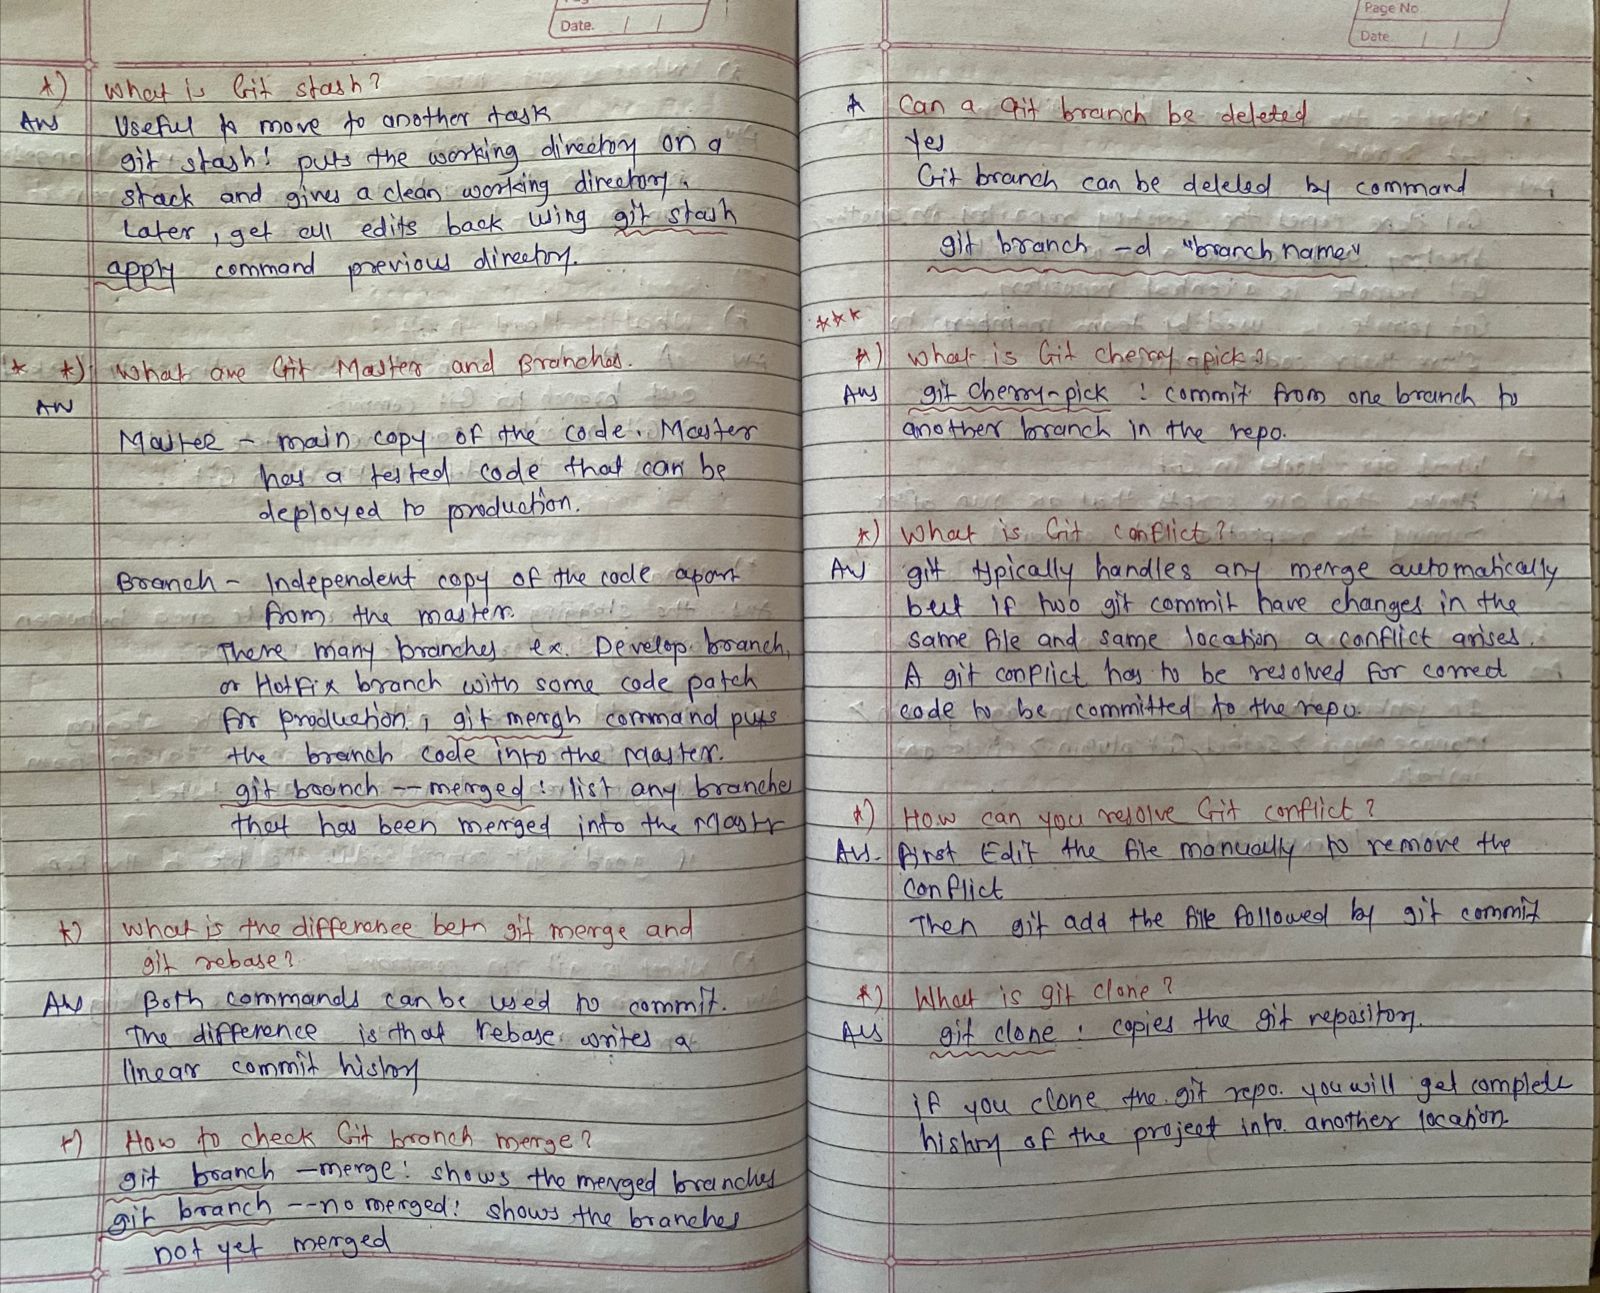 Date.
*) What is Git stash?
Ans Useful to move to another task
git stash: puts the working directory on a
stack and gives a clean working directory.
Later, get all edits back using git stash
apply command previous directory.
* *) What are Git Master and Branches.
Ans
Master - main copy of the code. Master
has a tested code that can be
deployed to production.
Branch - Independent copy of the code apart
from the master.
There many branches ex. Develop branch,
or Hotfix branch with some code patch
for production, git mergh command puts
the branch code into the Master.
git branch --merged: list any branches
that has been merged into the Mastr
*) What is the difference betn git merge and
git rebase?
Ans Both commands can be used to commit.
The difference is that rebase writes a
linear commit history
*) How to check Git branch merge?
git branch -merge: shows the merged branches
git branch --no merged: shows the branches
not yet merged
Page No
Date
* Can a Git branch be deleted
Yes
Git branch can be deleted by command
git branch -d "branch name"
***
*) What is Git cherry-pick?
Ans git cherry-pick : commit from one branch to
another branch in the repo.
*) What is Git conflict?
Ans git typically handles any merge automatically
but if two git commit have changes in the
same file and same location a conflict arises.
A git conflict has to be resolved for correct
code to be committed to the repo.
*) How can you resolve Git conflict?
Ans. First Edit the file manually to remove the
conflict
Then git add the file followed by git commit
*) What is git clone?
Ans git clone : copies the git repository.
if you clone the git repo. you will get complete
history of the project into another location.